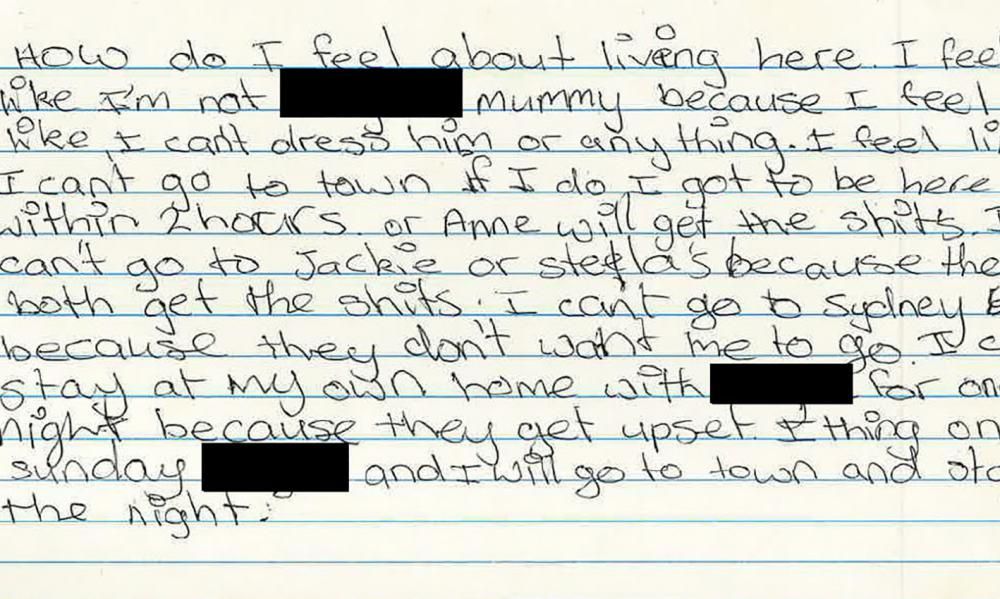 How do I feel about living here. I fee
like I'm not mummy because I feel
like I can't dress him or any thing. I feel li
I cant go to town if I do I got to be here
within 2 hours. or Anne will get the shits. I
can't go to Jackie or stella's because the
both get the shits. I cant go to sydney
because they don't want me to go. I c
stay at my own home with for on
night because they get upset. I thing on
sunday and I will go to town and sta
the night.